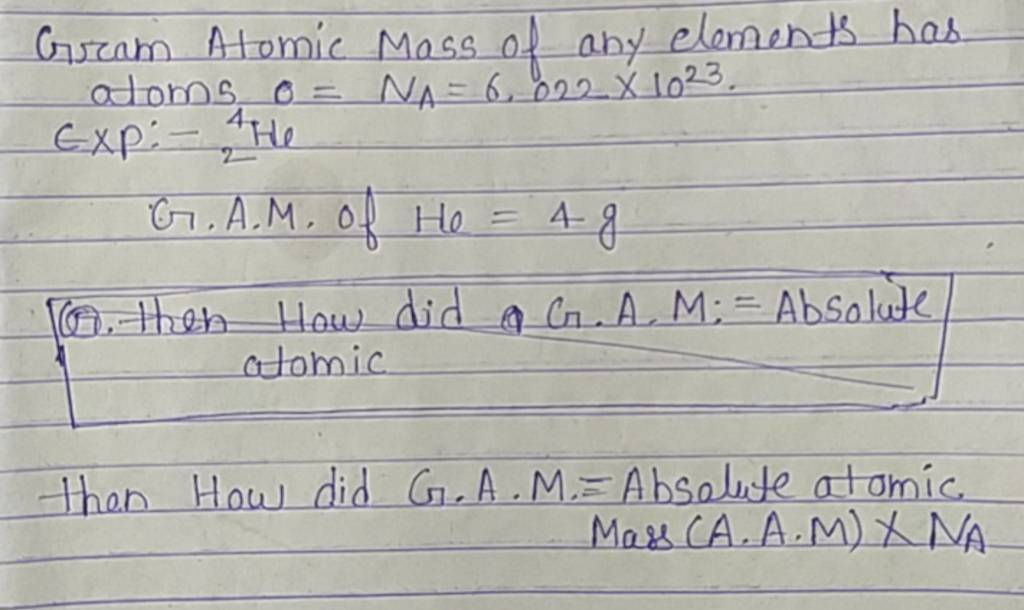 Gram Atomic Mass of any elements has
atoms o = NA = 6.022 X 10²³.
Exp:- ⁴₂He
G.A.M. of He = 4 g
Q. then How did G.A.M. = Absolute
atomic
then How did G.A.M. = Absolute atomic
Mass (A.A.M) X NA